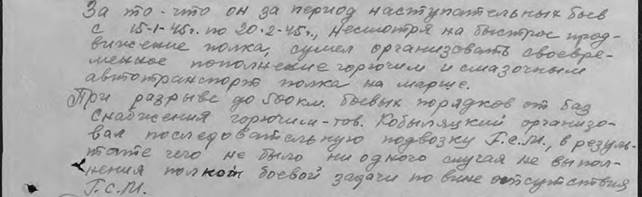 За то-что он за период наступательных боев
с 15-1-45г. по 20-2-45г., несмотря на быстрое прод-
вижение полка, сумел организовать своевре-
менное пополнение горючим и смазочным
автотранспорт полка на марше.
При разрыве до 500км. боевых порядков от баз
снабжения горючим-тов. Кобыляцкий организо-
вал последовательную подвозку Г.С.М., в резуль-
тате чего не было ни одного случая не выпол-
нения полком боевой задачи по вине отсутствия
Г.С.М.